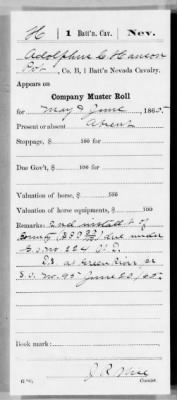 H | 1 Batt'n. Cav. | Nev.
Adolphus C. Hanson
Pvt., Co. B, 1 Batt'n Nevada Cavalry.
Appears on
Company Muster Roll
for May & June, 1865.
Present or absent Absent
Stoppage, $ 100 for
Due Gov't, $ 100 for
Valuation of horse, $ 100
Valuation of horse equipments, $ 100
Remarks: 2nd installt of
bounty due under
G.O. No. 224
D.S. at Green River
S.O. No. 95 June 20/65.
Book mark:
Copyist.